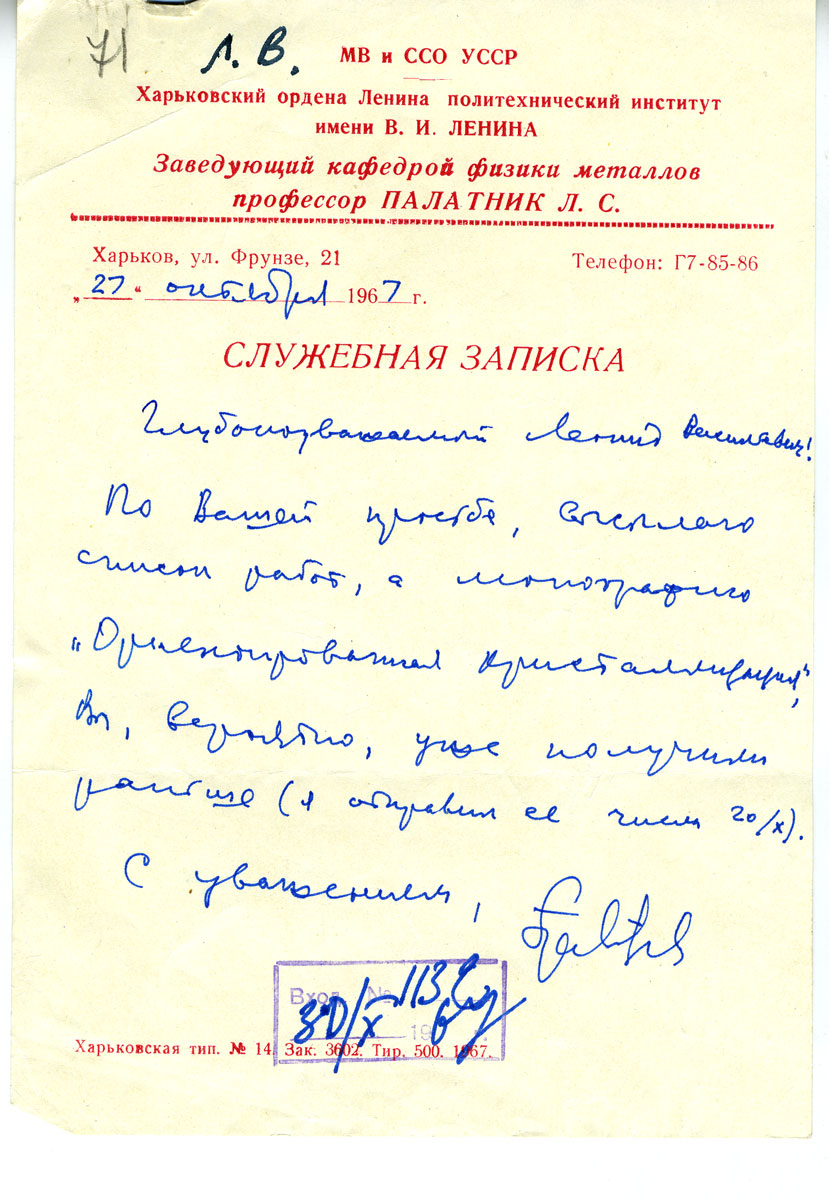 71 Л. В.
МВ и ССО УССР
Харьковский ордена Ленина политехнический институт
имени В. И. ЛЕНИНА
Заведующий кафедрой физики металлов
профессор ПАЛАТНИК Л. С.
Харьков, ул. Фрунзе, 21 Телефон: Г7-85-86
„27“ октября 1967 г.
СЛУЖЕБНАЯ ЗАПИСКА
Глубокоуважаемый Леонид Васильевич!
По Вашей просьбе, высылаю
список работ, а монографию
„Ориентированная кристаллизация“,
Вы, вероятно, уже получили
раньше (я отправил ее числа 20/X).
С уважением,
Вход. №
30/X 19 г.
Харьковская тип. № 14. Зак. 3602. Тир. 500. 1967.